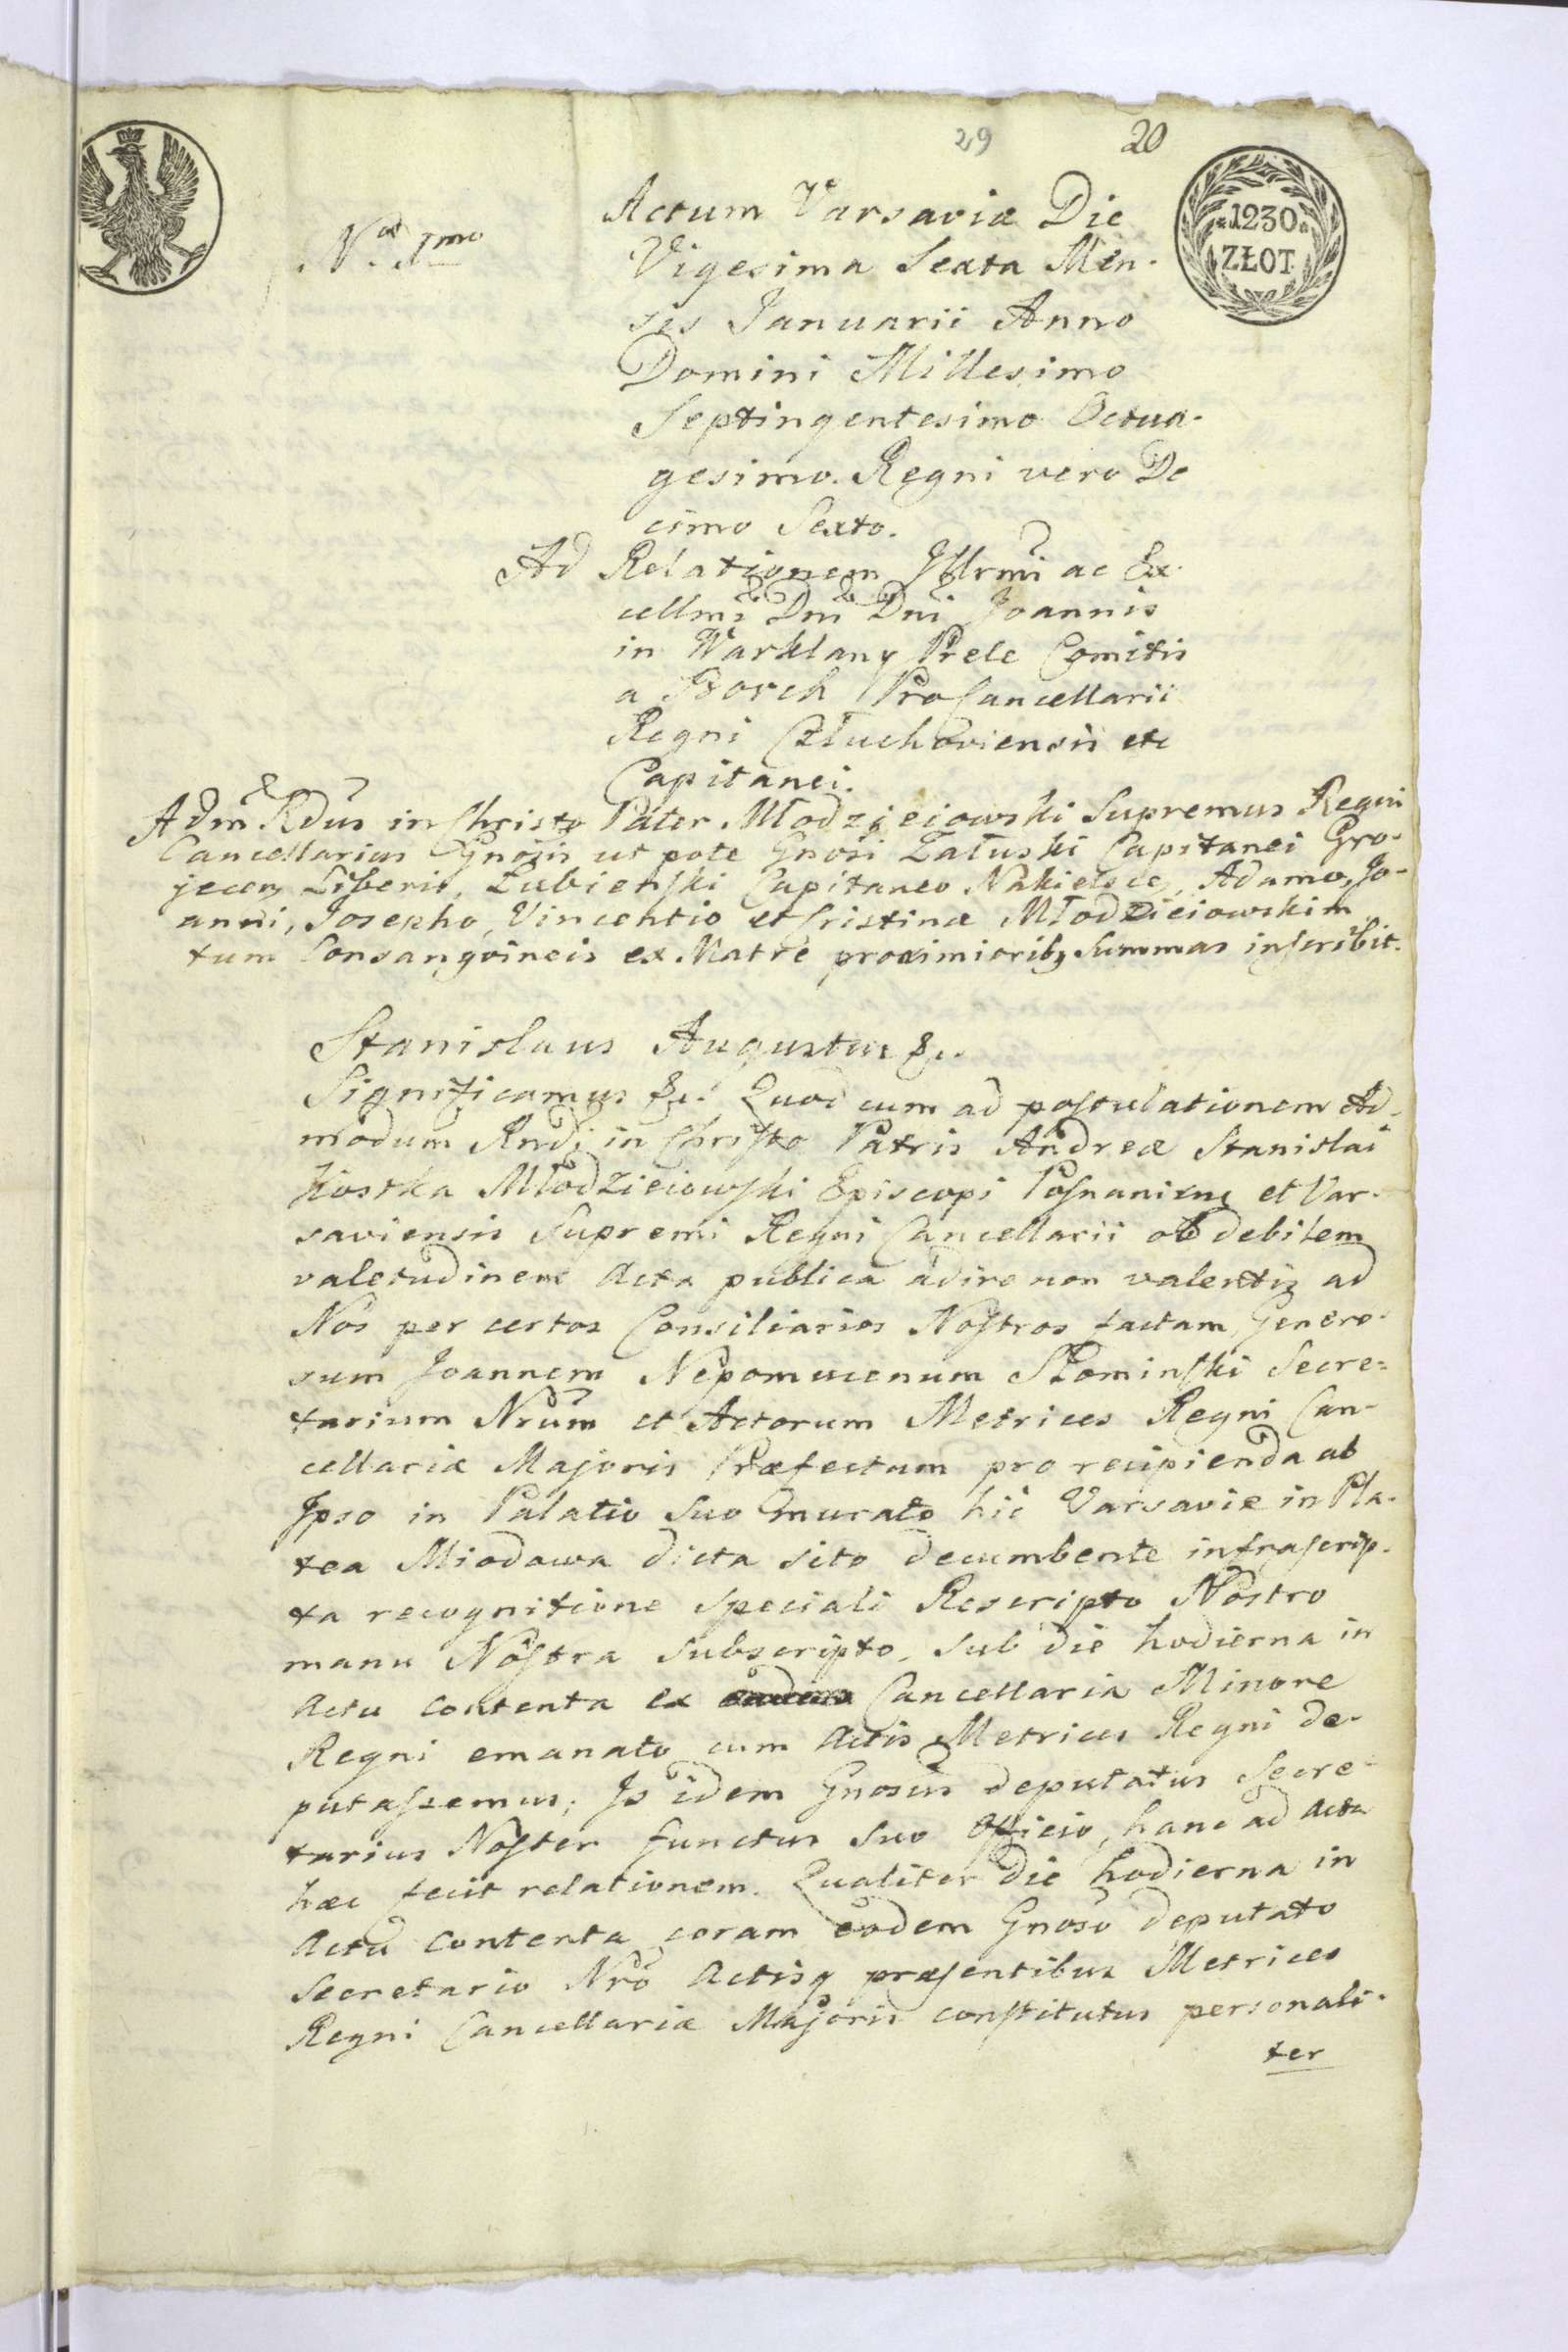 29 20
1230
ZŁOT
No 1mo
Actum Varsaviæ Die
Vigesima Sexta Men-
sis Januarii Anno
Domini Millesimo
Septingentesimo Octua-
gesimo. Regni vero De
cimo Sexto.
Ad Relationem Illrmi ac Ex-
cellmi Dni Dni Joannis
in Warklany Prele Comitis
a Borch ProCancellarii
Regni Człuchoviensis etc
Capitanei.
Adm Rdus in Christo Pater Młodzieiowski Supremus Regni
Cancellarius Gnosis ut pote Gnosi Załuski Capitanei Gro-
jecen Liberis, Łubieński Capitaneo Nakielsce, Adamo, Jo-
anni, Josepho, Vincentio et Cristinæ Młodzieiowskim
tum Consangvineis ex Matre proximiorib9 Summas inscribit.
Stanislaus Augustus &c.
Significamus &c. Quod cum ad postulationem Ad-
modum Rndi in Christo Patris Andreæ Stanislai
Kostka Młodzieiowski Episcopi Posnanien et Var-
saviensis Supremi Regni Cancellarii ob debilem
valetudinem acta publica adire non valentis ad
Nos per certos Consiliarios Nostros factam, Genero-
sum Joannem Nepomucenum Słominski Secre-
tarium Nrum et Actorum Metrices Regni Can-
cellariæ Majoris Præfectum pro recipienda ab
Ipso in Palatio suo murato hic Varsaviæ in Pla-
tea Miodowa dicta sito decumbente infrascrip-
ta recognitione speciali Rescripto Nostro
manu Nostra subscripto, sub die hodierna in
actu contenta ex Cancellaria Minore
Regni emanato cum actis Metrices Regni de-
putassemus; Is idem Gnosus deputatus Secre-
tarius Noster functus suo officio, hanc ad acta
hæc fecit relationem. Qualiter die hodierna in
actu contenta coram eodem Gnoso deputato
Secretario Nro actisq præsentibus Metrices
Regni Cancellariæ Majoris constitutus personali-
ter